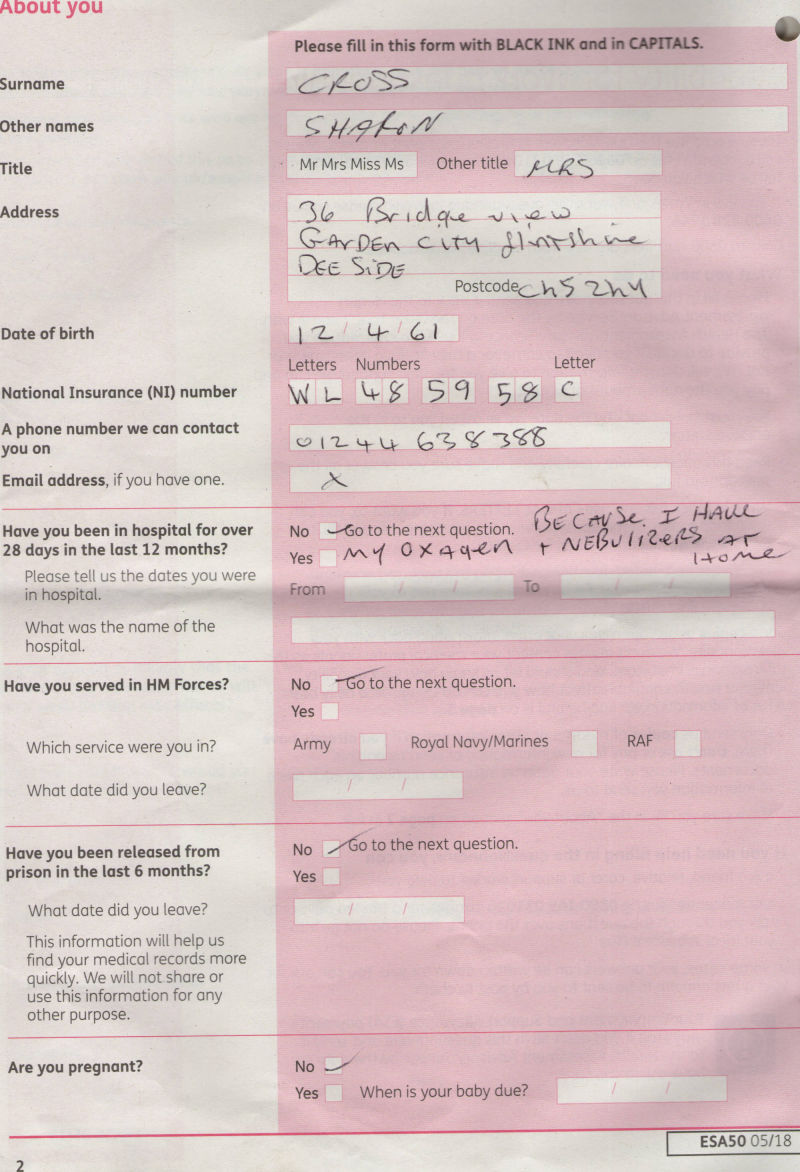 About you
Please fill in this form with BLACK INK and in CAPITALS.
Surname CROSS
Other names SHARON
Title Mr Mrs Miss Ms Other title MRS
Address 36 Bridge view
GARDEN CITY flintshire
DEESIDE
Postcode Ch5 2hY
Date of birth 12 / 4 / 61
Letters Numbers Letter
National Insurance (NI) number WL 48 59 58 C
A phone number we can contact
you on 01244 638388
Email address, if you have one. X
Have you been in hospital for over
28 days in the last 12 months?
No Go to the next question. BECAUSE I HAVE
Yes MY OXAgen + NEBUlIzERS AT
HOME
Please tell us the dates you were
in hospital.
From / / To / /
What was the name of the
hospital.
Have you served in HM Forces?
No Go to the next question.
Yes
Which service were you in? Army Royal Navy/Marines RAF
What date did you leave? / /
Have you been released from
prison in the last 6 months?
No Go to the next question.
Yes
What date did you leave? / /
This information will help us
find your medical records more
quickly. We will not share or
use this information for any
other purpose.
Are you pregnant? No
Yes When is your baby due? / /
ESA50 05/18
2